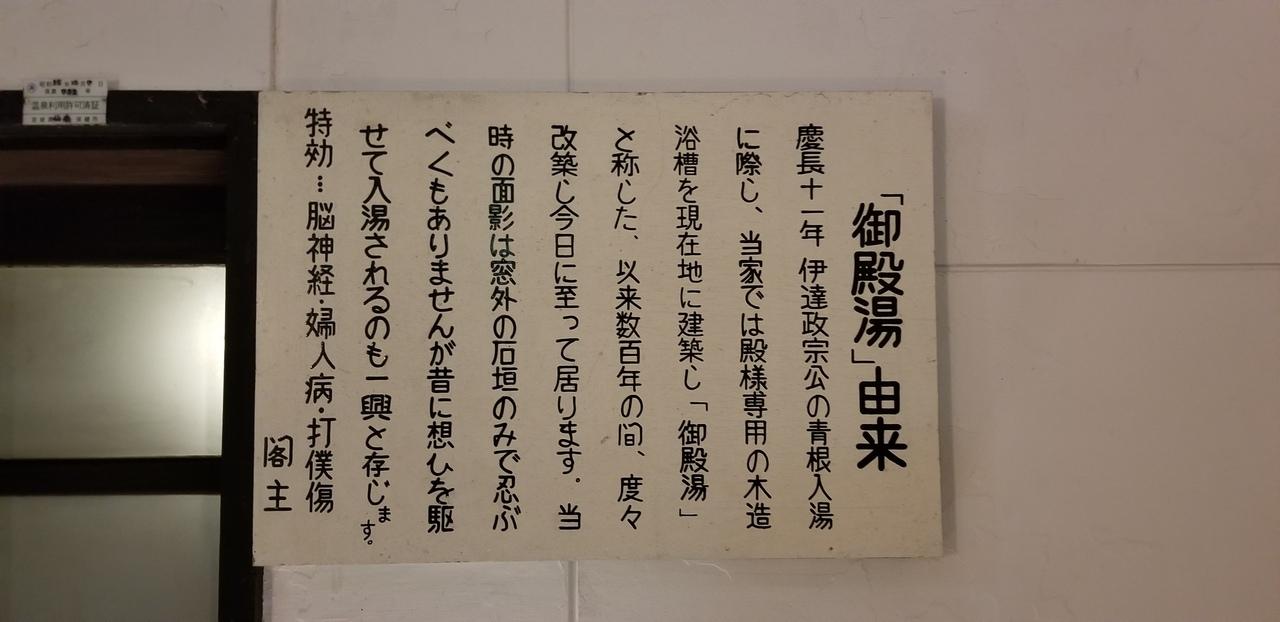 「御殿湯」由来
慶長十一年 伊達政宗公の青根入湯
に際し、当家では殿様専用の木造
浴槽を現在地に建築し「御殿湯」
と称した、以来数百年の間、度々
改築し今日に至って居ります。当
時の面影は窓外の石垣のみで忍ぶ
べくもありませんが昔に想ひを駆
せて入湯されるのも一興と存じます。
特効…脳神経・婦人病・打僕傷
閣主
温泉利用許可済証